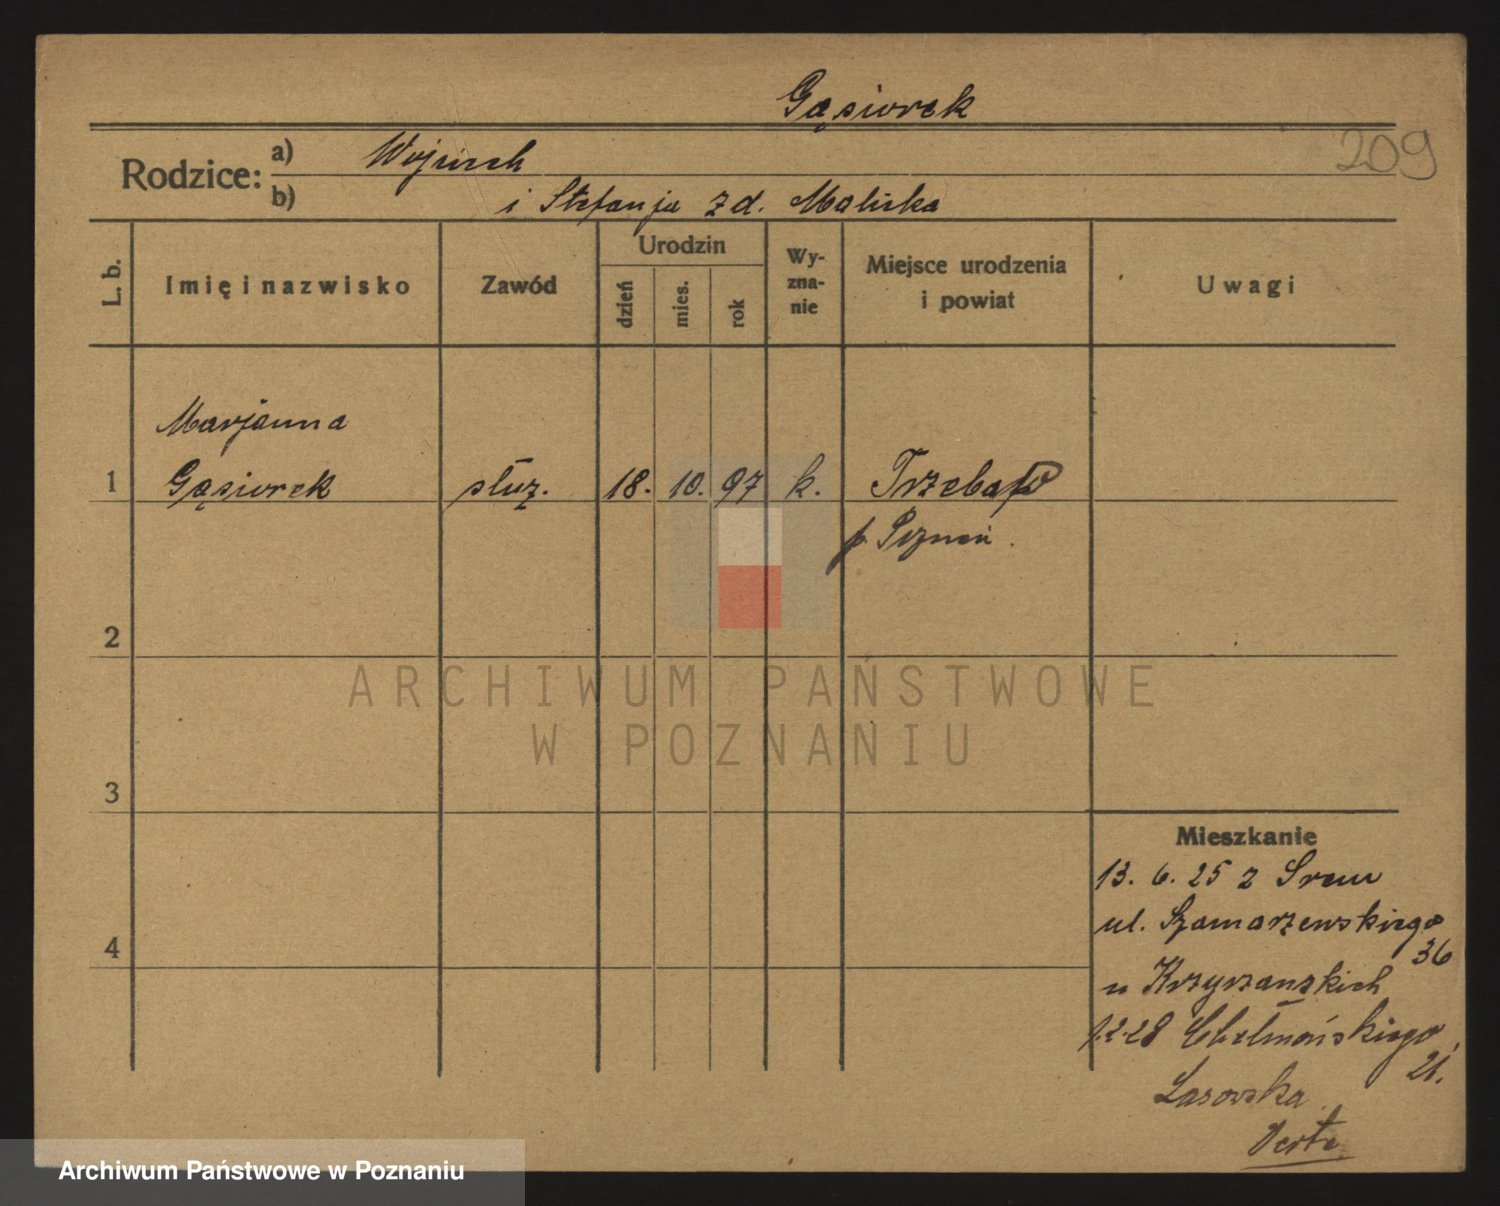 Gąsiorek
209
Rodzice:
a) Wojciech
b) i Stefanja z d. Malicka
L. b.
Imię i nazwisko
Zawód
Urodzin
dzień
mies.
rok
Wy-
zna-
nie
Miejsce urodzenia
i powiat
Uwagi
Marjanna
1 Gąsiorek służ. 18. 10. 97 k. Trzebaw
p. Poznań.
2
3
4
ARCHIWUM PAŃSTWOWE
W POZNANIU
Mieszkanie
13. 6. 25 z Śrem
ul. Szamarzewskiego
36
u Krzyżanskich
1.2.28 Chełmońskiego
21.
Lasowska
Verte
Archiwum Państwowe w Poznaniu